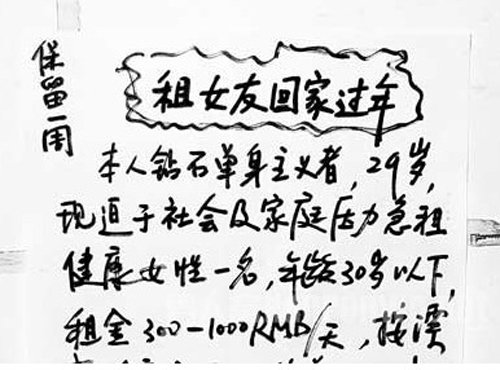 保留一周
租女友回家过年
本人钻石单身主义者,29岁,
现迫于社会及家庭压力急租
健康女性一名,年龄30岁以下,
租金300-1000RMB/天,按